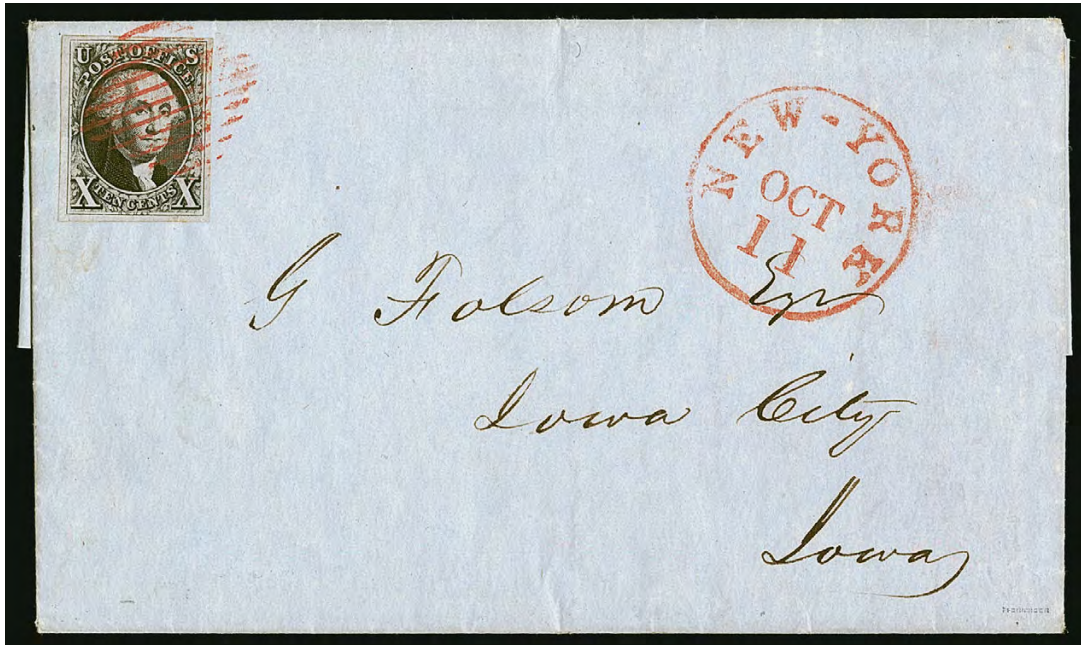 U S
POST OFFICE
X TEN CENTS X
NEW-YORK
OCT
11
G Folsom Esqr
Iowa City
Iowa